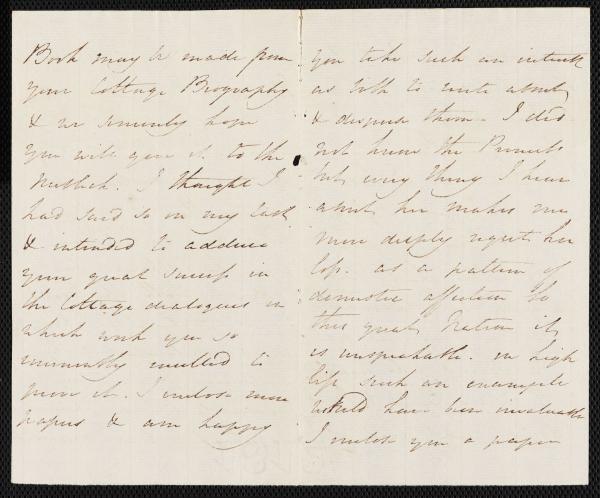 Book may be made from
your Cottage Biography
& we sincerely hope
you will give it to the
Publick. I thought I
had said so in my last
& intended to adduce
your great success in
the Cottage dialogues in
which work you so
eminently excelled to
prove it. I inclose more
papers & am happy
you take such an interest
as both to write about
& disperse them. I did
not know the Princess
but every thing I hear
about her makes me
more deeply regret her
loss. as a pattern of
domestic affection to
this great Nation it
is unspeakable. in high
life such an example
would have been invaluable
I inclose you a paper